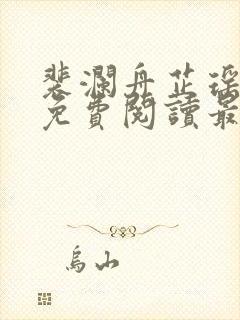 裴瀾舟芷瑤
免費閱讀最
烏山